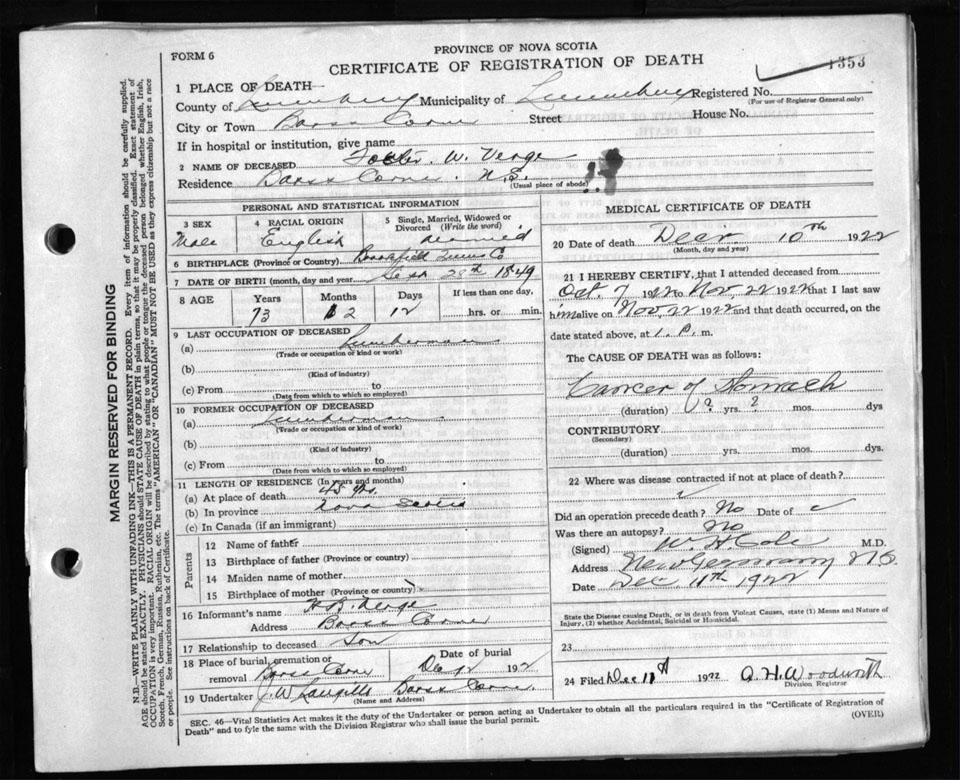 PROVINCE OF NOVA SCOTIA
FORM 6
CERTIFICATE OF REGISTRATION OF DEATH
1353
1 PLACE OF DEATH
County of Lunenburg Municipality of Lunenburg Registered No.
(For use of Registrar General only)
City or Town Barss Corner Street House No.
If in hospital or institution, give name
2 NAME OF DECEASED Foster W. Verge
Residence Barss Corner N.S. (Usual place of abode)
PERSONAL AND STATISTICAL INFORMATION
3 SEX 4 RACIAL ORIGIN 5 Single, Married, Widowed or Divorced (Write the word)
Male English
6 BIRTHPLACE (Province or Country) Brookfield Lunen Co
7 DATE OF BIRTH (month, day and year) Sept 28th 1849
8 AGE Years Months Days If less than one day,
73 2 12 hrs. or min.
9 LAST OCCUPATION OF DECEASED
(a) Lumberman
(Trade or occupation or kind or work)
(b)
(Kind of industry)
(c) From to
(Date from which to which so employed)
10 FORMER OCCUPATION OF DECEASED
(a) Lumberman
(Trade or occupation or kind of work)
(b)
(Kind of industry)
(c) From to
(Date from which to which so employed)
11 LENGTH OF RESIDENCE (In years and months)
(a) At place of death 45 yrs.
(b) In province Nova Scotia
(c) In Canada (if an immigrant)
Parents
12 Name of father
13 Birthplace of father (Province or country)
14 Maiden name of mother
15 Birthplace of mother (Province or country)
16 Informant's name H B. Verge
Address Barss Corner
17 Relationship to deceased Son
18 Place of burial, cremation or removal Barss Corner Date of burial Dec 12 192
19 Undertaker J. W. Langille Barss Corner
(Name and Address)
MEDICAL CERTIFICATE OF DEATH
20 Date of death Decr. 10th 1922
(Month, day and year)
21 I HEREBY CERTIFY, that I attended deceased from
Oct. 7 1922 to Nov. 22 1922 that I last saw
him alive on Nov. 22 1922 and that death occurred, on the
date stated above, at 1. P. m.
The CAUSE OF DEATH was as follows:
Cancer of Stomach
(duration) ? yrs. ? mos. dys
CONTRIBUTORY
(Secondary)
(duration) yrs. mos. dys.
22 Where was disease contracted if not at place of death?
Did an operation precede death? No Date of
Was there an autopsy? No
(Signed) W H. Cole M.D.
Address New Germany N S
Date Dec 11th 1922
State the Disease causing Death, or in death from Violent Causes, state (1) Means and Nature of
Injury, (2) whether Accidental, Suicidal or Homicidal.
23
24 Filed Dec 11th 1922 A. H. Woodworth
Division Registrar
SEC. 46—Vital Statistics Act makes it the duty of the Undertaker or person acting as Undertaker to obtain all the particulars required in the "Certificate of Registration of
Death" and to fyle the same with the Division Registrar who shall issue the burial permit.
(OVER)
MARGIN RESERVED FOR BINDING
N.B.—WRITE PLAINLY WITH UNFADING INK—THIS IS A PERMANENT RECORD. Every item of information should be carefully supplied.
AGE should be stated EXACTLY. PHYSICIANS should STATE CAUSE OF DEATH in plain terms, so that it may be properly classified. Exact statement of
OCCUPATION is very important. RACIAL ORIGIN will be described by stating to what people or tongue the deceased person belonged whether English, Irish,
Scotch, French, German, Russian, Ruthenian, etc. The terms "AMERICAN" or "CANADIAN" MUST NOT BE USED as they express citizenship but not a race
or people. See instructions on back of Certificate.